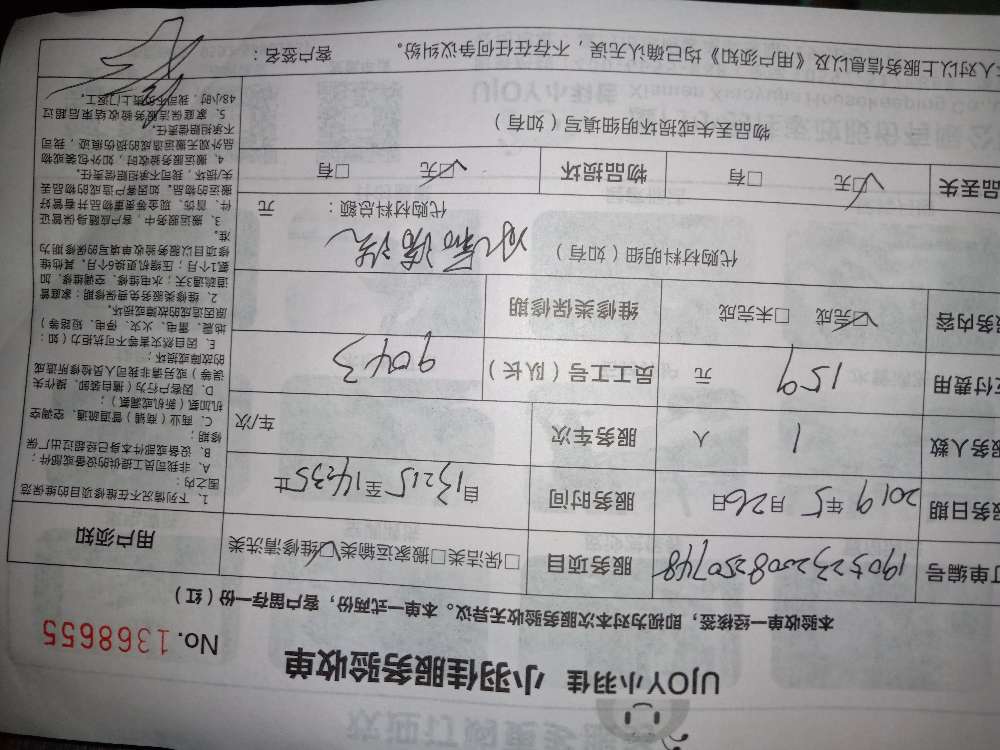 UJOY小羽佳 小羽佳服务验收单
No. 1368655
本验收单一经签核，即视为对本次服务验收无异议。本单一式两份，客户留存一份（红）
订单编号 1905232008250748 服务项目 □保洁类□搬家运输类☑维修清洗类
服务日期 2019年5月26日 服务时间 自13:15至14:35止
服务人数 1 人 服务车次 车/次
支付费用 159 元 员工工号（队长） 9043
服务内容 ☑完成 □未完成 维修类保修期
代购材料明细（如有）
代购材料总额： 元
物品丢失 ☑无 □有 物品损坏 ☑无 □有
物品丢失或损坏明细填写（如有）
本人对以上服务信息以及《用户须知》均已确认无误，不存在任何争议纠纷。 客户签名：
用户须知
1、下列情况不在维修项目的维保范
围之内：
A、非我司员工提供的设备或部件；
B、设备或部件本身已经超过出厂保
修期；
C、商业（商铺）管道疏通、空调空
机加氨（新机或漏氨）；
D、因客户行为（擅自装卸、操作失
误等）或另请非我司人员检修所造成
的故障或损坏；
E、因自然灾害等不可抗拒力（如：
地震、雷电、火灾、停电、短路等）
原因造成的故障或损坏。
2、维修类服务免费保修期：家庭管
道疏通3天；水电维修、空调维修、加
氨1个月；压缩机更换6个月，其他维
修项目以服务验收单填写的保修期为
准。
3、搬运服务中，客户应随身保管证
件、首饰、现金等贵重物品并看管好
搬运的物品，如因客户造成的物品丢
失/损坏，我司不承担赔偿责任。
4、搬运服务验收时，如外包装或物
品外观无搬运造成的损伤痕迹，我司
不承担赔偿责任。
5、家庭保洁服务验收结束后超过
48小时，我司不负责上门返工。